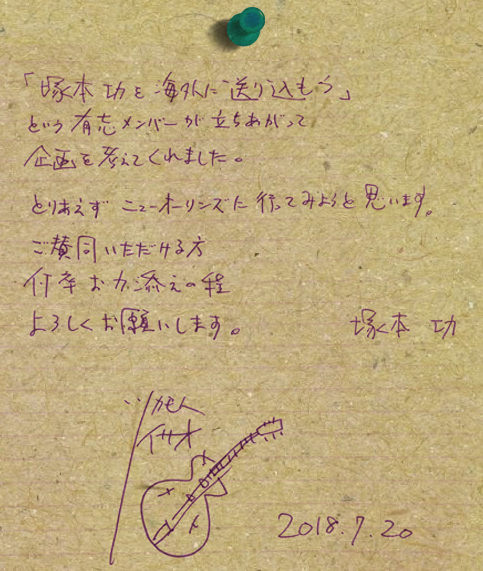 「塚本功を海外に送り込もう」
という有志メンバーが立ちあがって
企画を考えてくれました。
とりあえずニューオーリンズに行ってみようと思います。
ご賛同いただける方
何卒お力添えの程
よろしくお願いします。
塚本 功
ツカモト
イサオ
2018.7.20